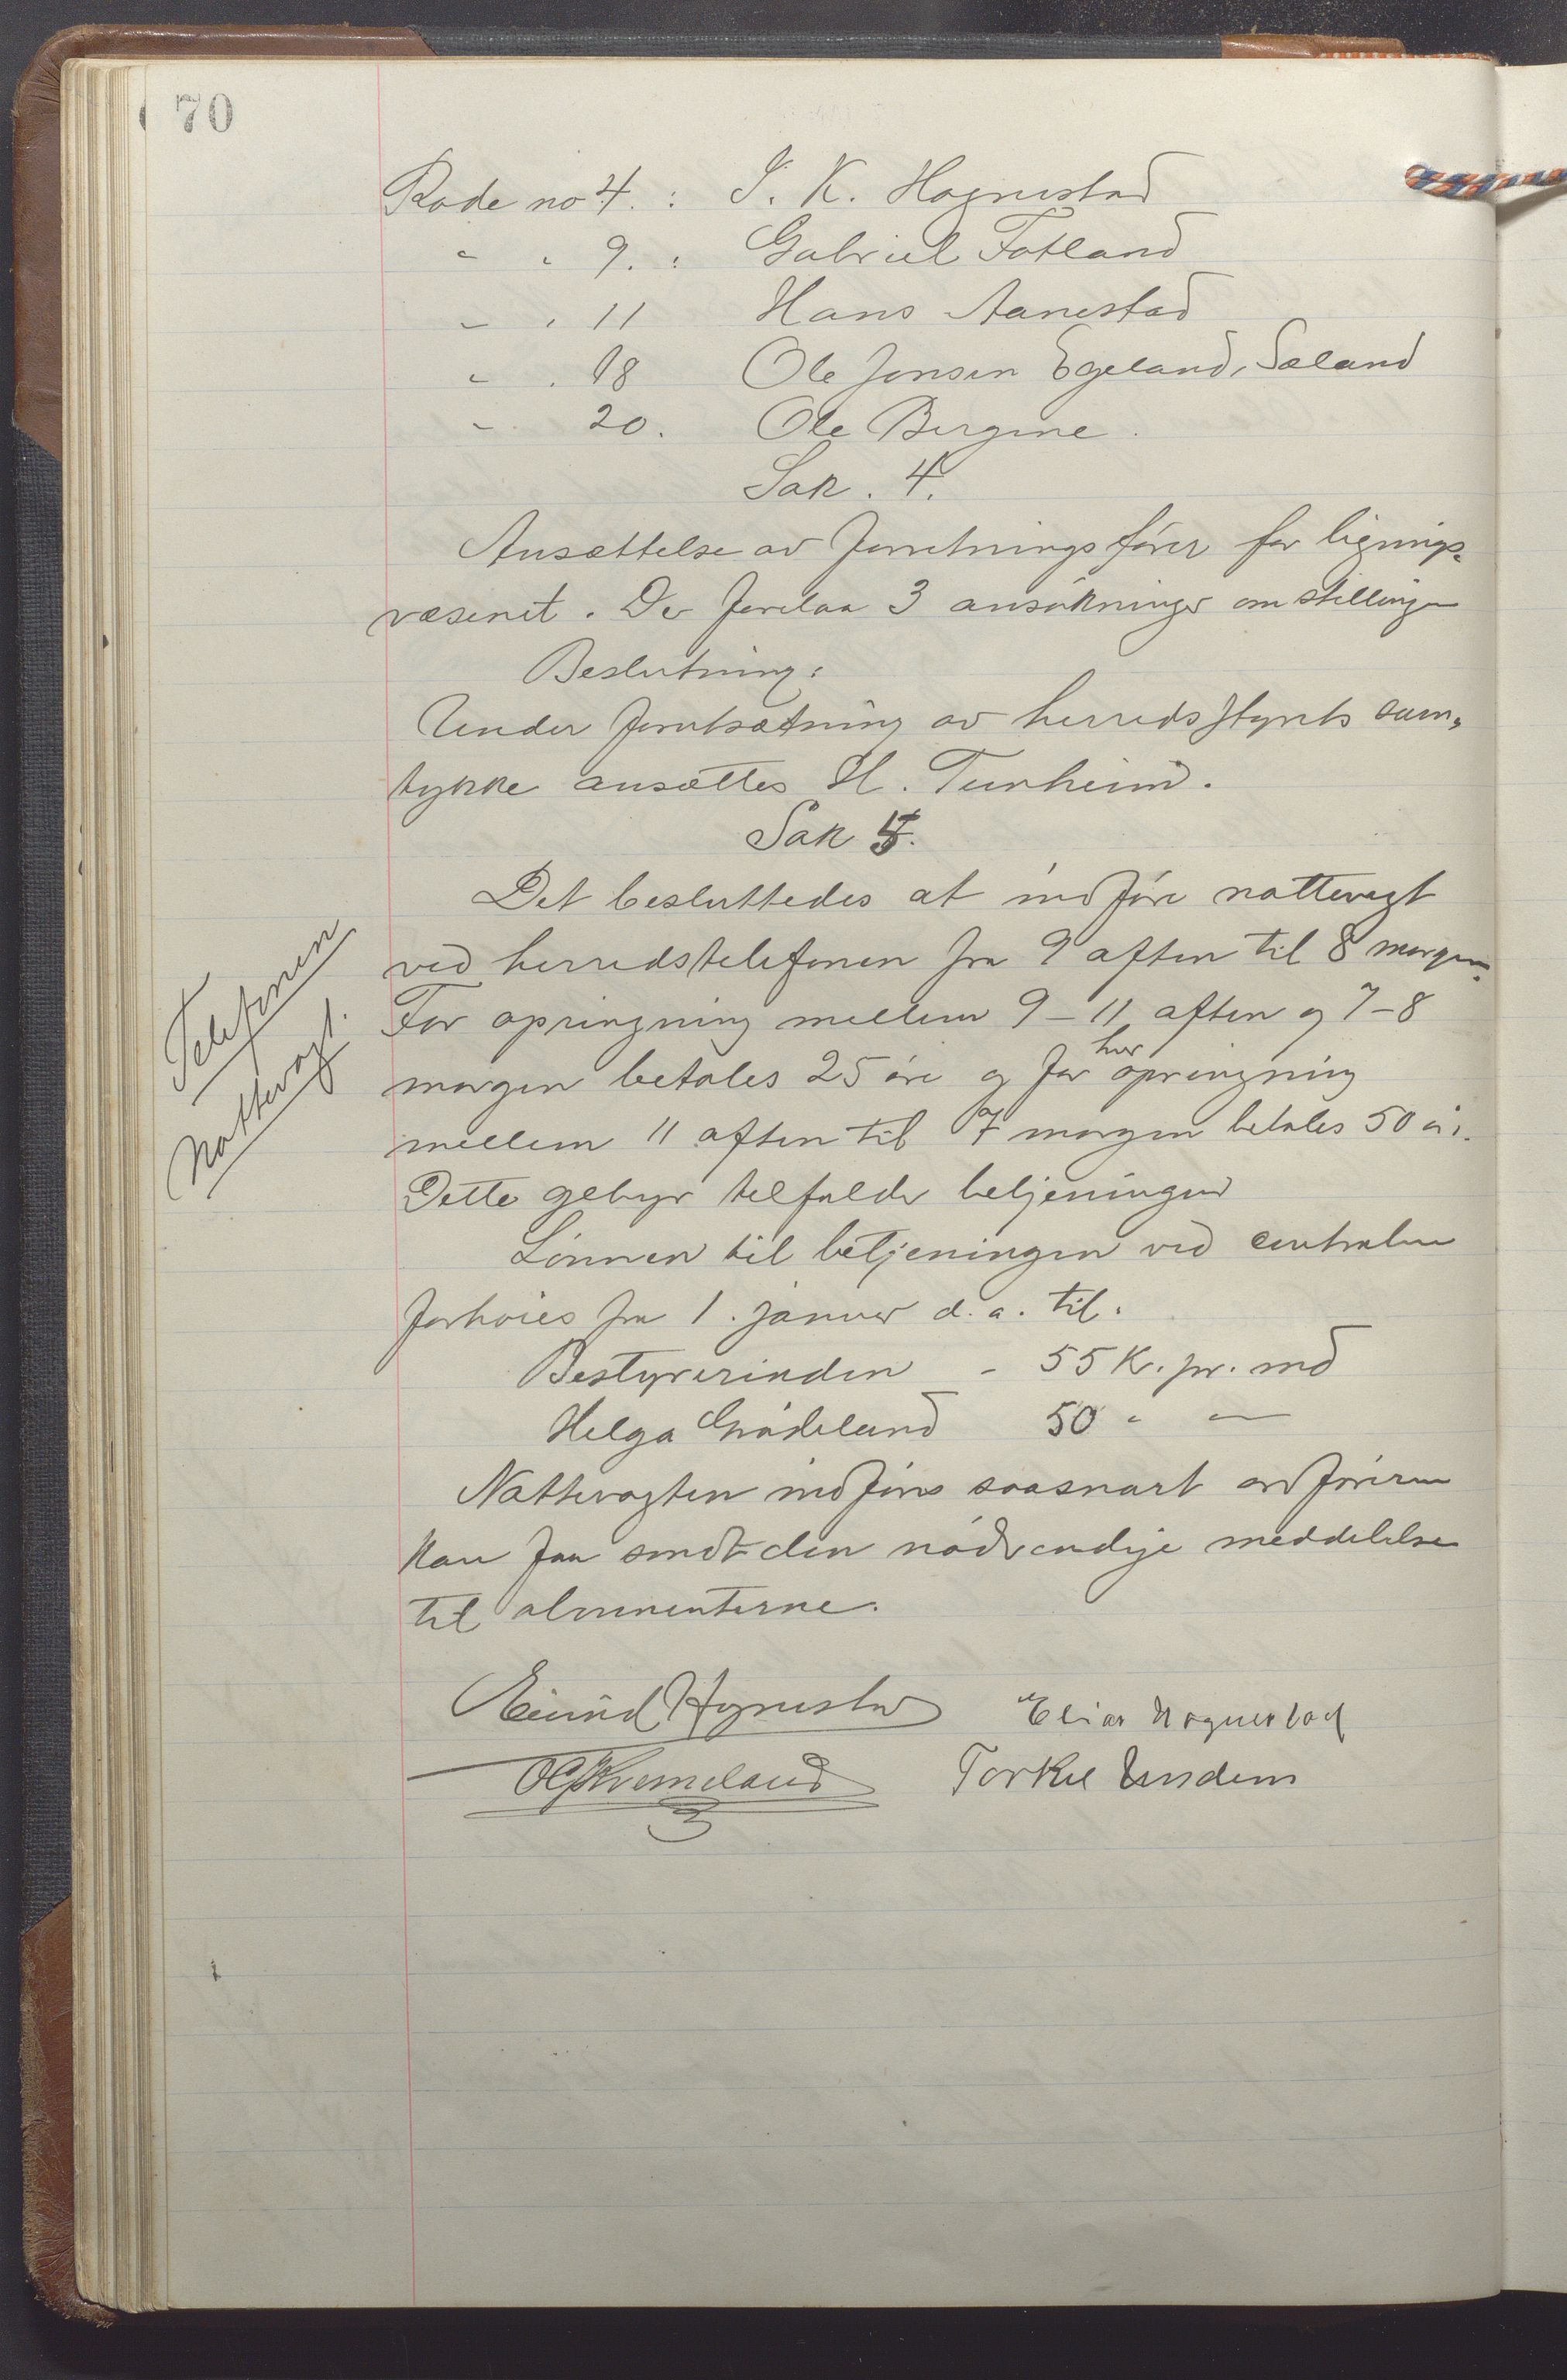 70
Rode no 4. : S. K. Hognestad
" " 9. : Gabriel Fotland
" " 11 Hans Aanestad
" " 18 Ole Jonsen Egeland, Sæland
" 20. Ole Bergene.
Sak. 4.
Ansættelse av forretningsfører for lignings-
væsenet. Der forelaa 3 ansökninger om stillingen
Beslutning:
Under forutsætning av herredsstyrets sam-
tykke ansættes H. Tunheim.
Sak 5.
Det besluttedes at indføre nattevagt
ved herredstelefonen fra 9 aften til 8 morgen.
For opringning mellem 9-11 aften og 7-8
morgen betales 25 öre og for hver opringning
mellem 11 aften til 7 morgen betales 50 ör.
Dette gebyr tilfalder betjeningen
Telefonen
Nattevagt.
Lönnen til betjeningen ved centralen
forhöies fra 1. januar d. a. til:
Bestyrerinden - 55 Kr. pr. md
Helga Grödeland 50 " "
Nattevagten indföres saasnart ordföreren
kan faa sendt den nödvendige meddelelse
til abonnenterne.
Eivind Hognestad Elias Hognestad
O G Kverneland Torkel Undem